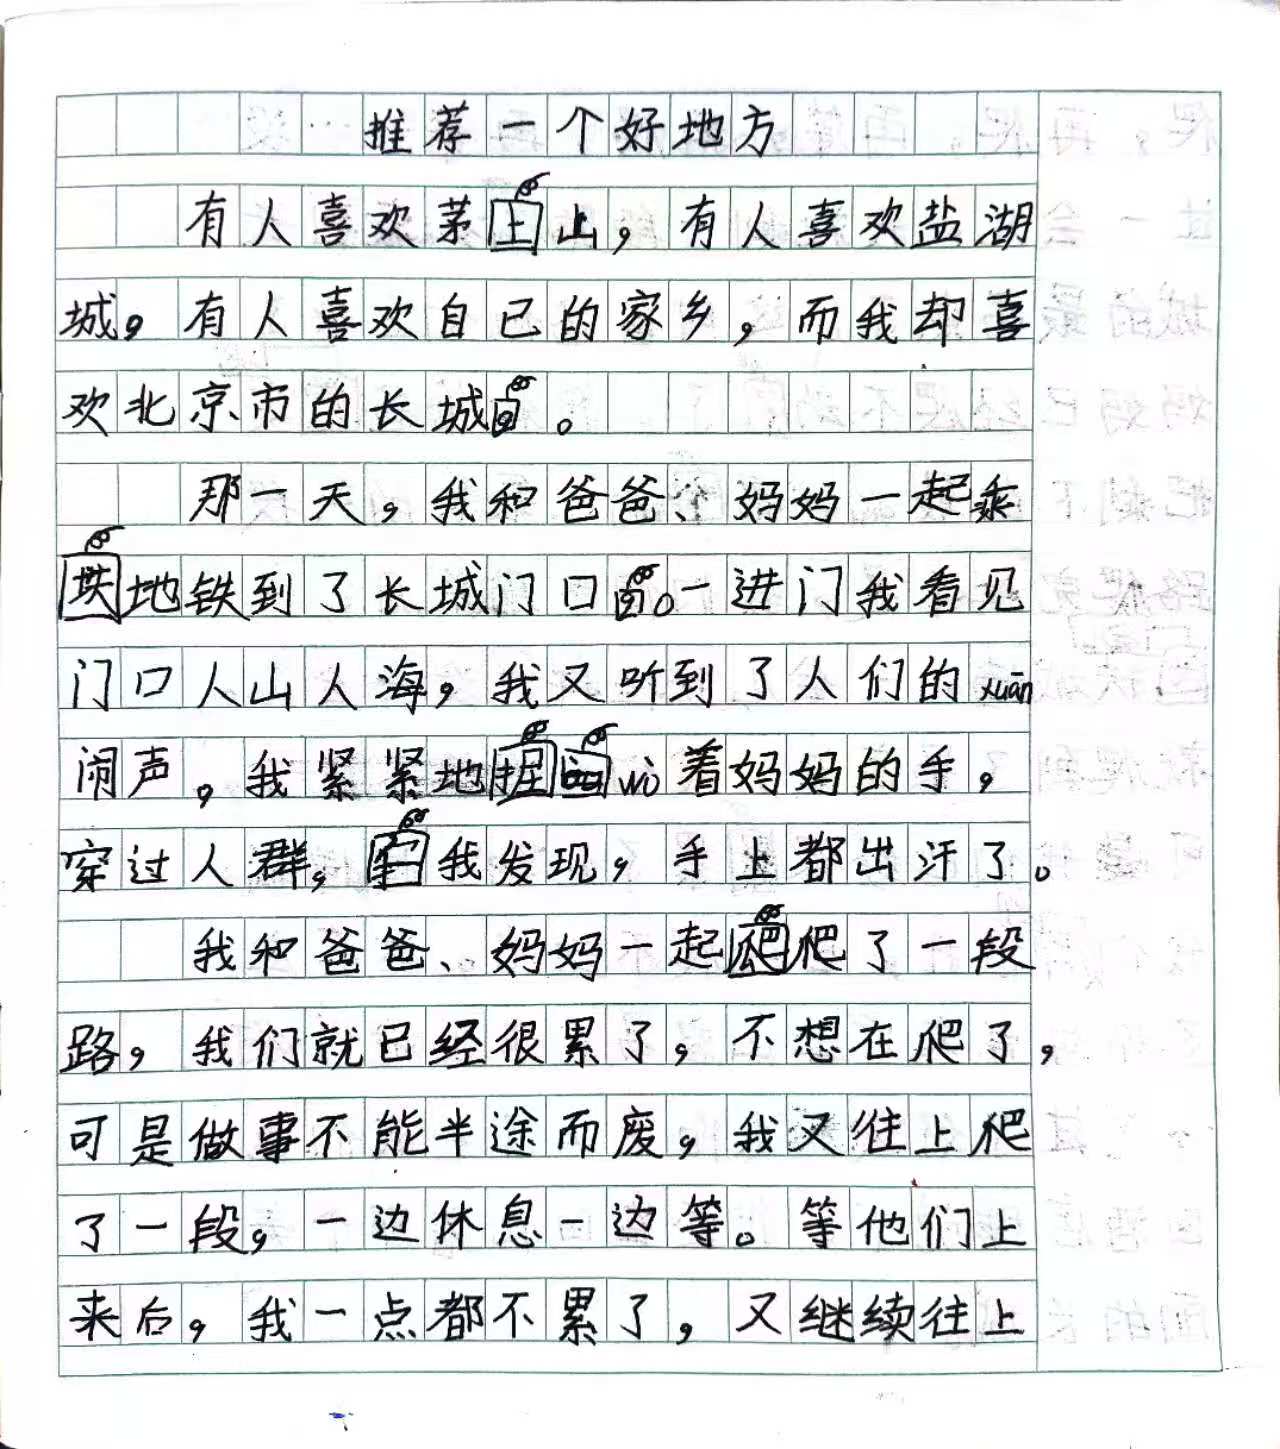 推荐一个好地方
有人喜欢茅山，有人喜欢盐湖
城。有人喜欢自己的家乡，而我却喜
欢北京市的长城。
那一天，我和爸爸、妈妈一起乘
地铁到了长城门口。一进门我看见
门口人山人海，我又听到了人们的xuān
闹声，我紧紧地wò着妈妈的手，
穿过人群，我发现，手上都出汗了。
我和爸爸、妈妈一起爬了一段
路，我们就已经很累了，不想在爬了，
可是做事不能半途而废，我又往上爬
了一段，一边休息一边等。等他们上
来后，我一点都不累了，又继续往上